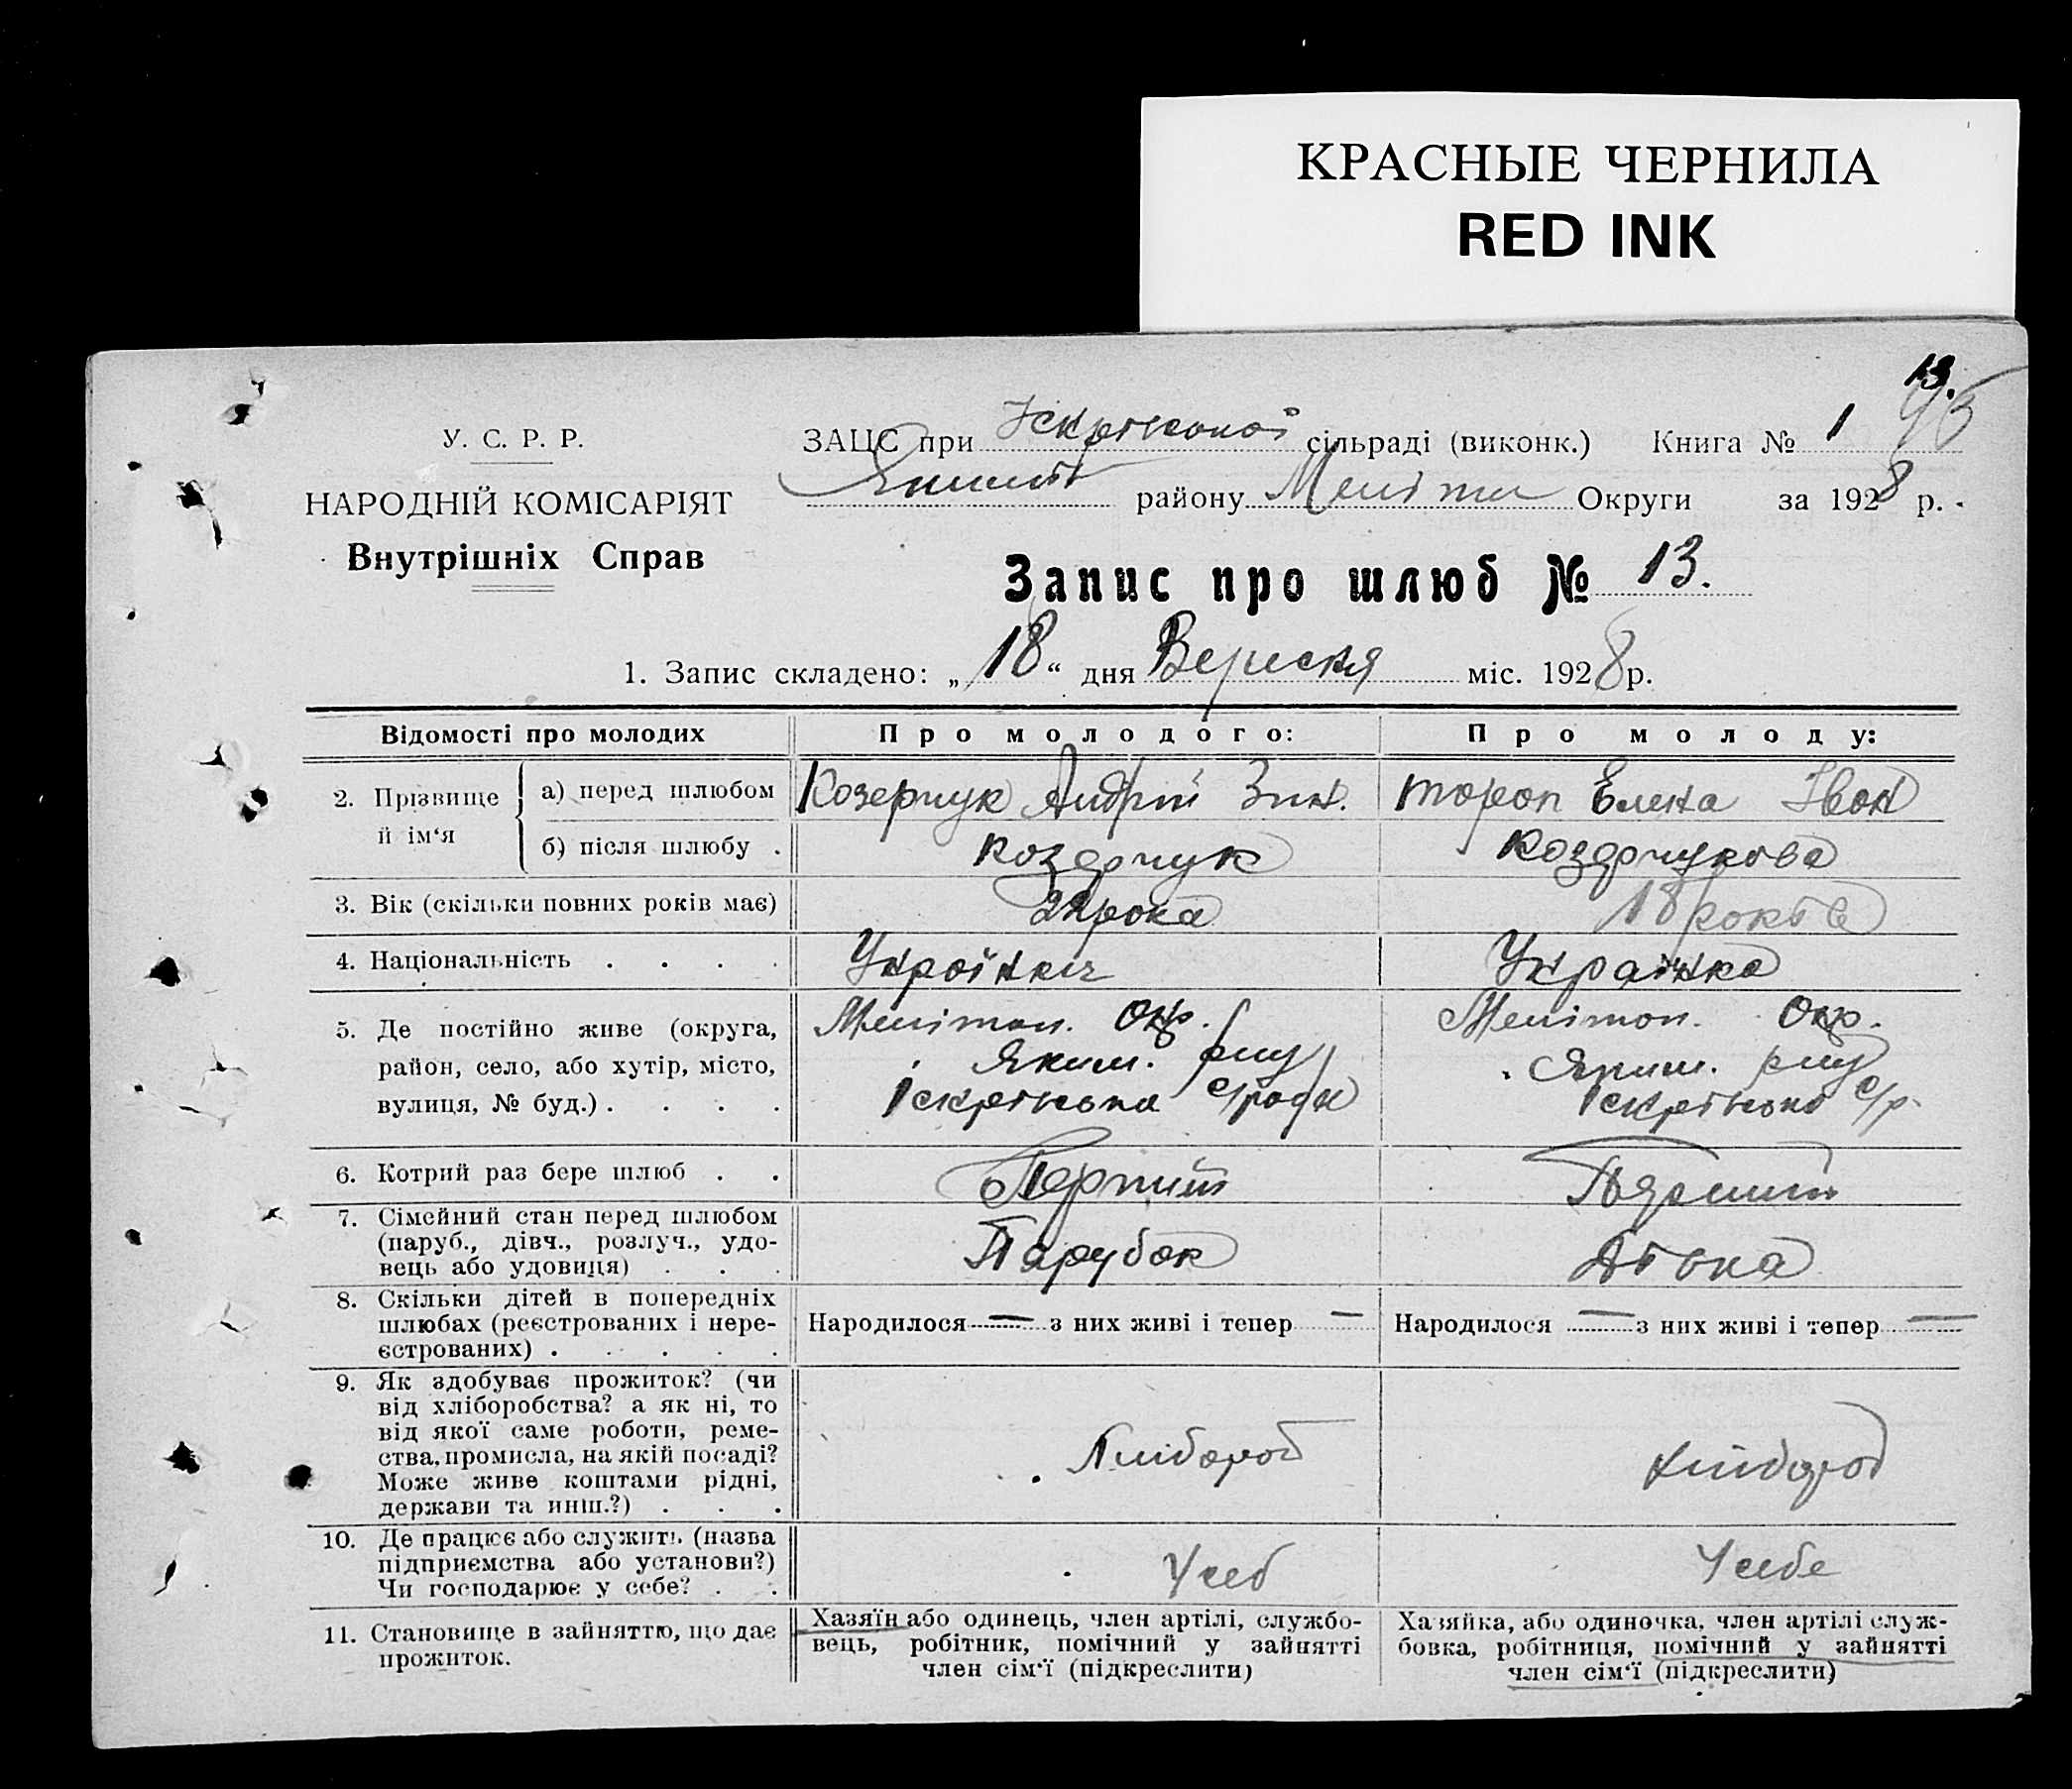 КРАСНЫЕ ЧЕРНИЛА
RED INK
13.
У. С. Р. Р.
ЗАЦС при Іскрівської сільраді (виконк.) Книга № 1
НАРОДНІЙ КОМІСАРІЯТ
району Меліт Округи за 1928 р.
Внутрішніх Справ
Запис про шлюб № 13.
1. Запис складено: „18“ дня Вересня міс. 1928 р.
Відомості про молодих
Про молодого:
Про молоду:
2. Прізвище й ім‘я
а) перед шлюбом
Козерчук Андрій Зин.
Тороп Елена Іван
б) після шлюбу .
Козерчук
Козерчукова
3. Вік (скільки повних років має)
22 рока
18 років
4. Національність . . . .
Українець
Українка
5. Де постійно живе (округа,
район, село, або хутір, місто,
вулиця, № буд.) . . . .
Мелітоп. Окр.
Яким. р-ну
Іскрівська с/рада
Мелітоп. Окр.
Яким. р-ну
Іскрівська с/р.
6. Котрий раз бере шлюб . .
Перший
Перший
7. Сімейний стан перед шлюбом
(паруб., дівч., розлуч., удо-
вець або удовиця) . . .
Парубок
Дівка
8. Скільки дітей в попередніх
шлюбах (реєстрованих і нере-
єстрованих) . . . . .
Народилося — з них живі і тепер —
Народилося — з них живі і тепер —
9. Як здобуває прожиток? (чи
від хліборобства? а як ні, то
від якої саме роботи, реме-
ства, промисла, на якій посаді?
Може живе коштами рідні,
держави та инш.?) . . .
Хлібороб
Хлібороб
10. Де працює або служить (назва
підприємства або установи?)
Чи господарює у себе? . .
У себ
У себе
11. Становище в зайняттю, що дає
прожиток.
Хазяїн або одинець, член артілі, службо-
вець, робітник, помічний у зайнятті
член сім‘ї (підкреслити)
Хазяйка, або одиночка, член артілі служ-
бовка, робітниця, помічний у зайнятті
член сім‘ї (підкреслити)